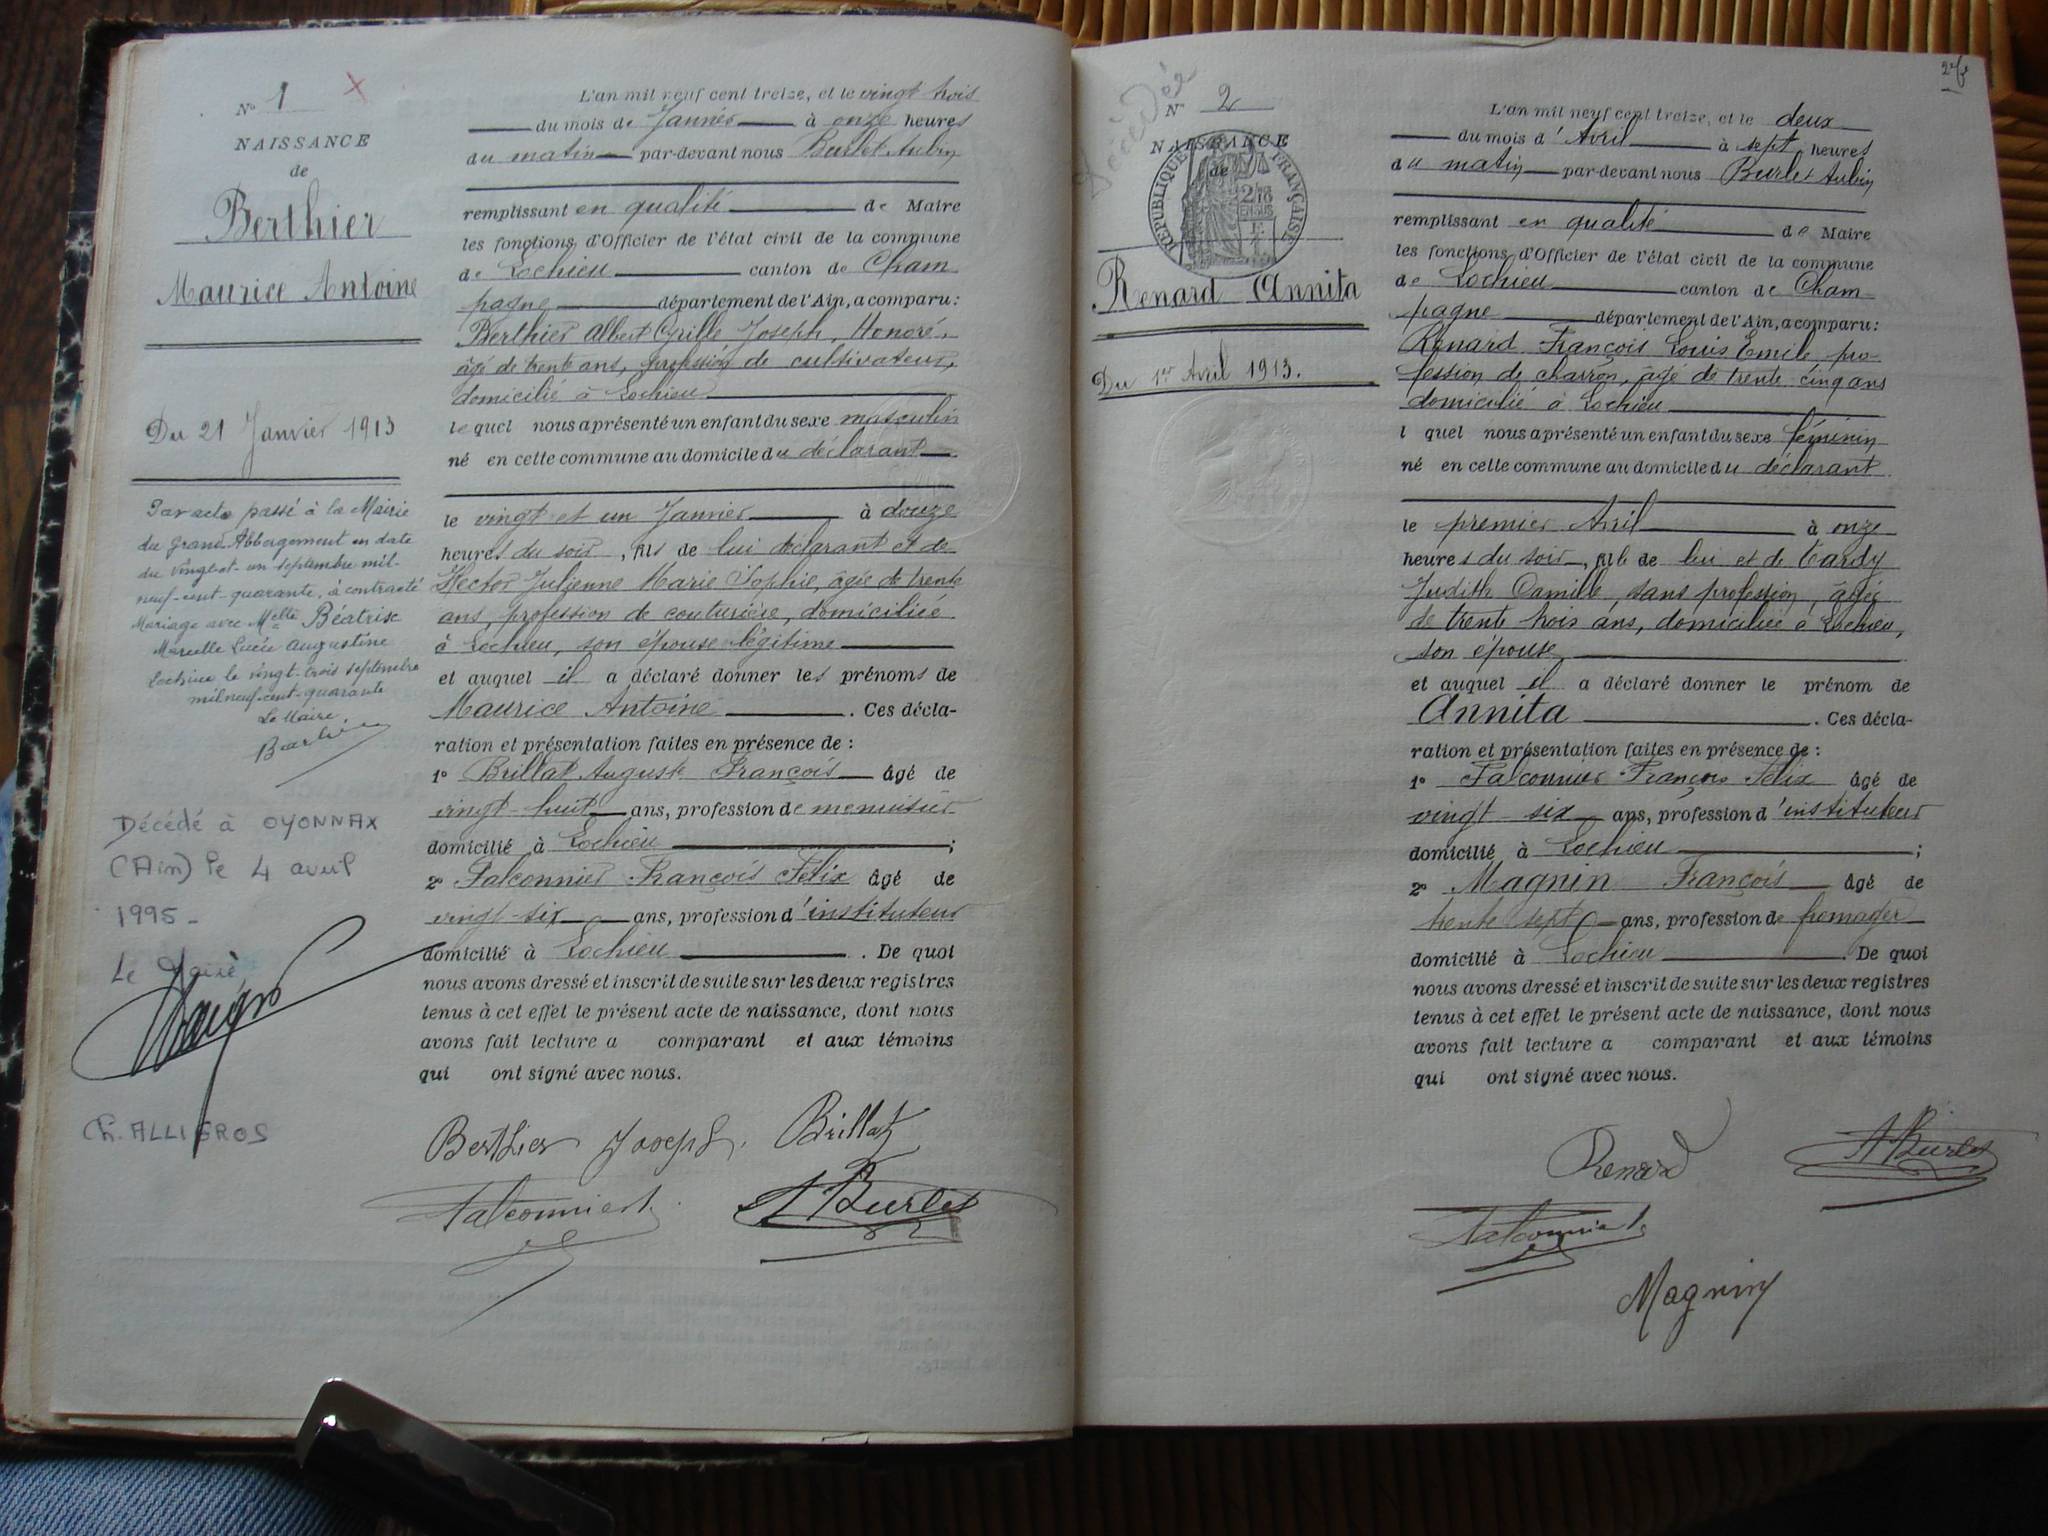 N° 1
NAISSANCE
de
Berthier
Maurice Antoine
Du 21 Janvier 1913
Par acte passé à la Mairie
du Grand-Abbergement en date
du vingt-et-un septembre mil-
neuf-cent-quarante, à contracté
Mariage avec Melle Béatrise
Marcelle Lucie Augustine
Lochieu le vingt-trois septembre
mil neuf-cent-quarante
Le Maire,
Décédé à OYONNAX
(Ain) le 4 avril
1995-
Le Maire,
Ch. ALLIGROS
L'an mil neuf cent treize, et le vingt trois
du mois de Janvier à onze heures
du matin par-devant nous Burlet Aubin
remplissant en qualité de Maire
les fonctions d'Officier de l'état civil de la commune
de Lochieu canton de Cham
pagne département de l'Ain, a comparu:
Berthier Albert Cyrille Joseph, Honoré,
âgé de trente ans, profession de cultivateur,
domicilié à Lochieu
lequel nous a présenté un enfant du sexe masculin
né en cette commune au domicile du déclarant
le vingt et un Janvier à douze
heures du soir, fils de lui déclarant et de
Hector Julienne Marie Sophie, âgée de trente
ans, profession de couturière, domiciliée
à Lochieu, son épouse légitime
et auquel il a déclaré donner les prénoms de
Maurice Antoine. Ces décla-
ration et présentation faites en présence de :
1° Brillat Auguste François âgé de
vingt-huit ans, profession de menuisier
domicilié à Lochieu ;
2° Falconnier François Félix âgé de
vingt-six ans, profession d'instituteur
domicilié à Lochieu. De quoi
nous avons dressé et inscrit de suite sur les deux registres
tenus à cet effet le présent acte de naissance, dont nous
avons fait lecture a comparant et aux témoins
qui ont signé avec nous.
Berthier Joseph. Brillat
Falconnier A Burlet
2e f.
Décédée
N° 2
NAISSANCE
de
RÉPUBLIQUE FRANÇAISE
2/10
EN SUS
Renard Annita
Du 1er Avril 1913.
L'an mil neuf cent treize, et le deux
du mois d'Avril à sept heures
du matin par-devant nous Burlet Aubin
remplissant en qualité de Maire
les fonctions d'Officier de l'état civil de la commune
de Lochieu canton de Cham
pagne département de l'Ain, a comparu:
Renard François Louis Emile pro-
fession de charron, âgé de trente cinq ans
domicilié à Lochieu
l quel nous a présenté un enfant du sexe féminin
né en cette commune au domicile du déclarant
le premier Avril à onze
heures du soir, fille de lui et de Tardy
Judith Camille, sans profession, âgée
de trente trois ans, domiciliée à Lochieu,
son épouse
et auquel il a déclaré donner le prénom de
Annita. Ces décla-
ration et présentation faites en présence de :
1° Falconnier François Félix âgé de
vingt-six ans, profession d'instituteur
domicilié à Lochieu ;
2° Magnin François âgé de
trente sept ans, profession de fromager
domicilié à Lochieu. De quoi
nous avons dressé et inscrit de suite sur les deux registres
tenus à cet effet le présent acte de naissance, dont nous
avons fait lecture a comparant et aux témoins
qui ont signé avec nous.
Renard A Burlet
Falconnier
Magnin